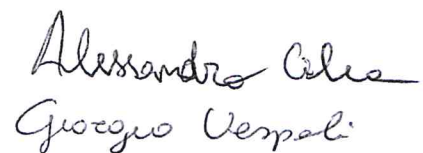 Alessandro
Giorgio Vespoli